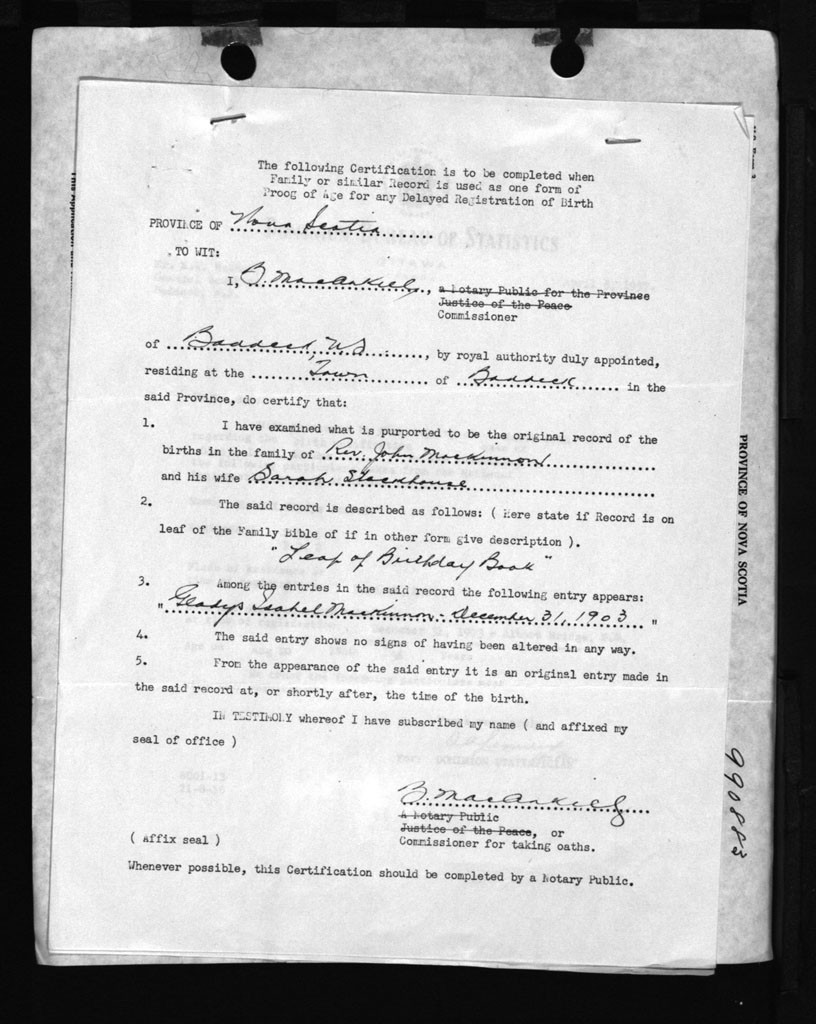 The following Certification is to be completed when
Family or similar Record is used as one form of
Proog of Age for any Delayed Registration of Birth
PROVINCE OF Nova Scotia
TO WIT:
I, B. MacAskill, a Notary Public for the Province
Justice of the Peace
Commissioner
of Baddeck, N.S. , by royal authority duly appointed,
residing at the Town of Baddeck in the
said Province, do certify that:
1. I have examined what is purported to be the original record of the
births in the family of Rev. John MacKinnon
and his wife Sarah Stackhouse
2. The said record is described as follows: ( Here state if Record is on
leaf of the Family Bible of if in other form give description ).
"Leaf of Birthday Book"
3. Among the entries in the said record the following entry appears:
"Gladys Isabel MacKinnon - December 31, 1903"
4. The said entry shows no signs of having been altered in any way.
5. From the appearance of the said entry it is an original entry made in
the said record at, or shortly after, the time of the birth.
IN TESTIMONY whereof I have subscribed my name ( and affixed my
seal of office )
B. MacAskill
A Notary Public
Justice of the Peace, or
( Affix seal )
Commissioner for taking oaths.
Whenever possible, this Certification should be completed by a Notary Public.
PROVINCE OF NOVA SCOTIA
990883
BUREAU OF STATISTICS
OTTAWA